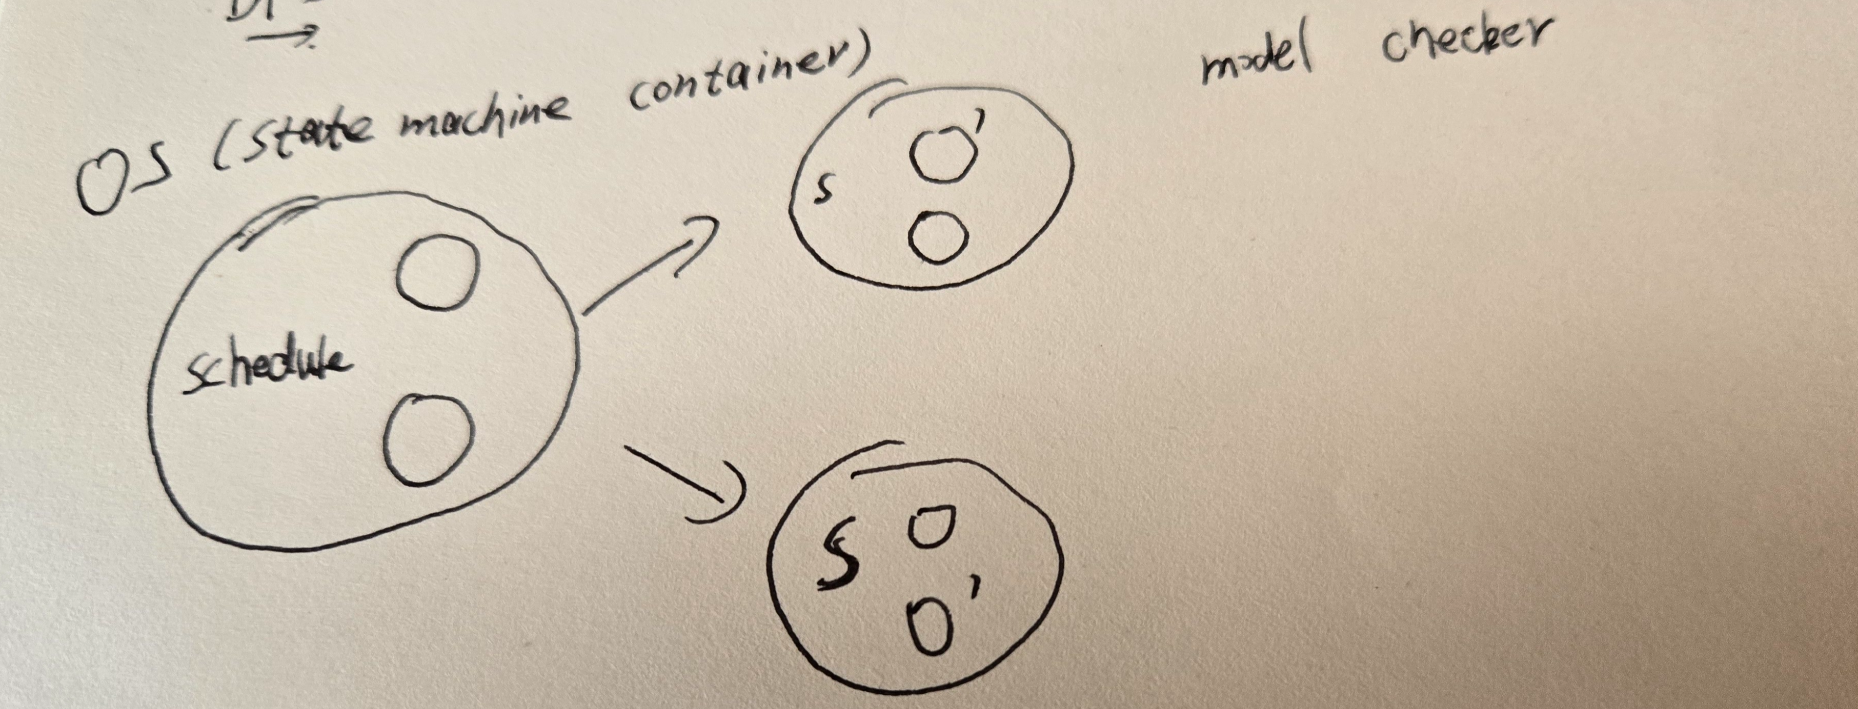 OS (state machine container)
model checker
schedule
s
S